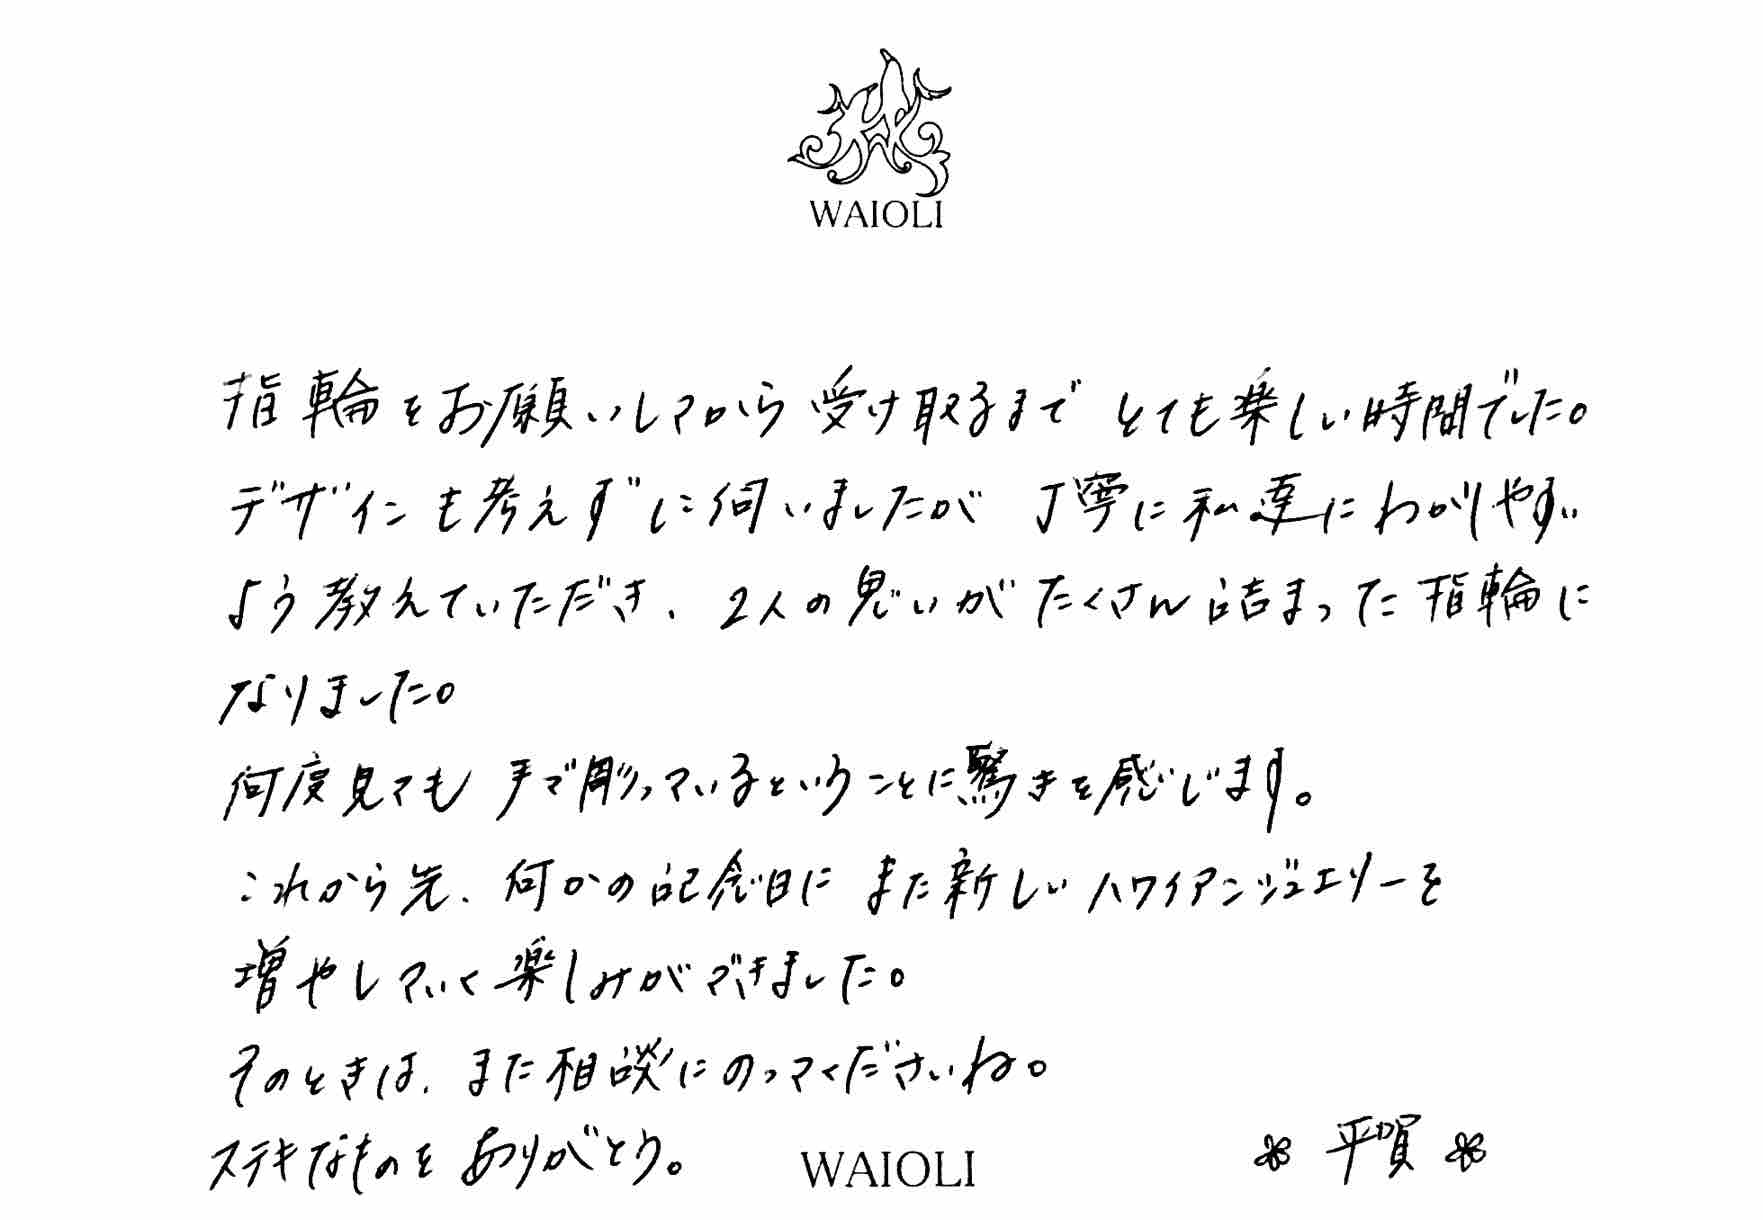 WAIOLI
指輪をお願いしてから受け取るまで とても楽しい時間でした。
デザインも考えずに伺いましたが 丁寧に私達にわかりやすい
よう教えていただき、2人の思いがたくさん詰まった指輪に
なりました。
何度見ても 手で彫っているということに驚きを感じます。
これから先、何かの記念日に また新しいハワイアンジュエリーを
増やしていく楽しみができました。
そのときは、また相談にのってくださいね。
ステキなものをありがとう。 WAIOLI 平賀